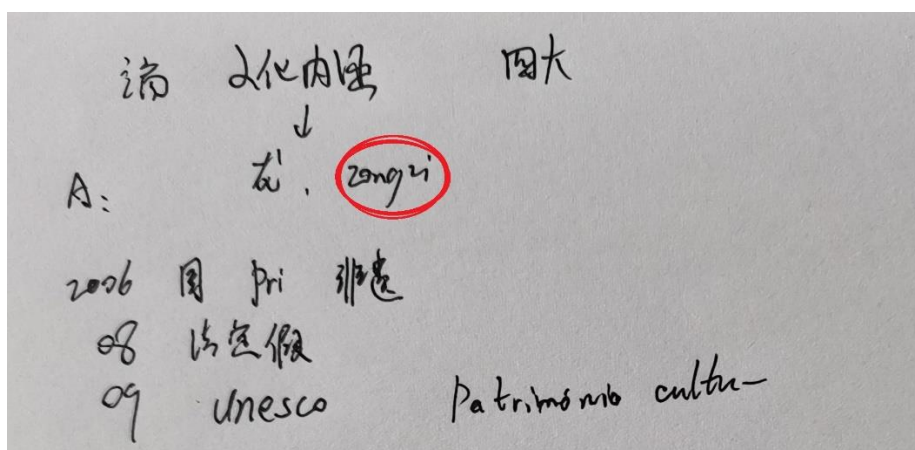 端 文化内涵 四大
↓
龙', zongzi
A:
2006 国 pri 非遗
08 法定假
09 Unesco Patrimónib cultu-